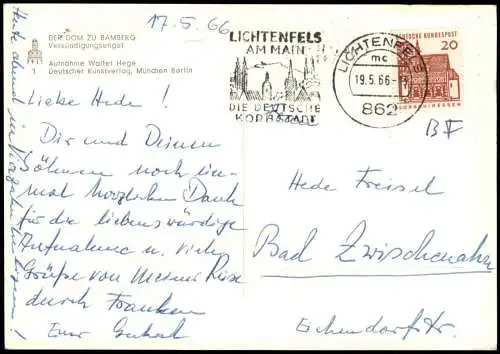 17.5.66
DER DOM ZU BAMBERG
Verkündigungsengel
Aufnahme Walter Hege
1 Deutscher Kunstverlag, München Berlin
LICHTENFELS
AM MAIN
DIE DEUTSCHE
KORBSTADT
LICHTENFELS
mc
19.5.66
862
DEUTSCHE BUNDESPOST
20
LORSCH/HESSEN
BF
Heute abend in
Liebe Hede!
Dir und Deinen
Söhnen noch ein-
mal herzlichen Dank
für die liebenswürdige
Aufnahme u. viele
Grüße von unserer Reise
durch Franken
Euer
Hede Freisel
Bad Zwischenahn
Eichendorffstr.